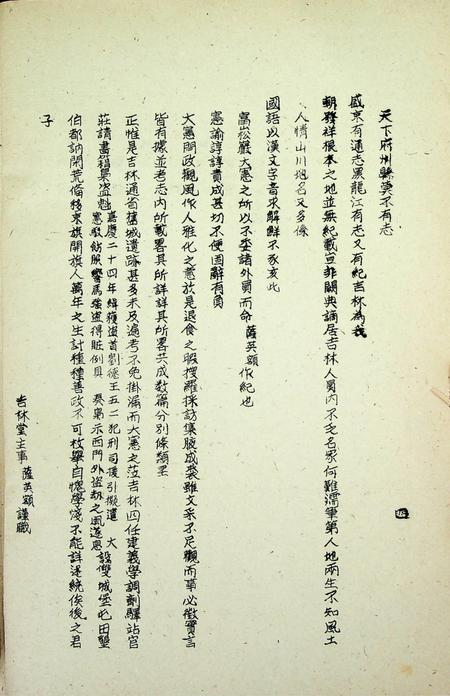 天下府州縣莫不有志
盛京有通志黑龍江有志又有紀吉林為我
朝發祥根本之地並無紀載豈非闕典謫居吉林人員內不乏名家何難濡筆第人地兩生不知風土
人情山川地名又多係
國語以漢文字音求解鮮不亥豕此
富崧巖大憲之所以不委諸外員而命薩英額作紀也
憲諭諄諄責成甚切不便固辭有負
大憲問政觀風作人雅化之意於是退食之暇搜羅採訪集腋成裘雖文采不足觀而事必徵實言
皆有據並考志內所載畧其所詳詳其所畧共成数篇分別條類至
正惟是吉林通省舊城遺跡甚多未及遍考不免掛漏而大憲之蒞吉林四任建義學調劑驛站官
莊請書籍集盜魁嘉慶二十四年緝獲盜首劉德王五二犯刑司援引擬遣大憲飭照響馬強盜得贓例具奏梟示西門外盜刼之風遂息設雙城堡屯田墾
伯都訥閑荒備移京旗閑旗人萬年之生計種種善政不可枚舉自愧學淺不能詳述統俟後之君
子
吉林堂主事薩英額謹識